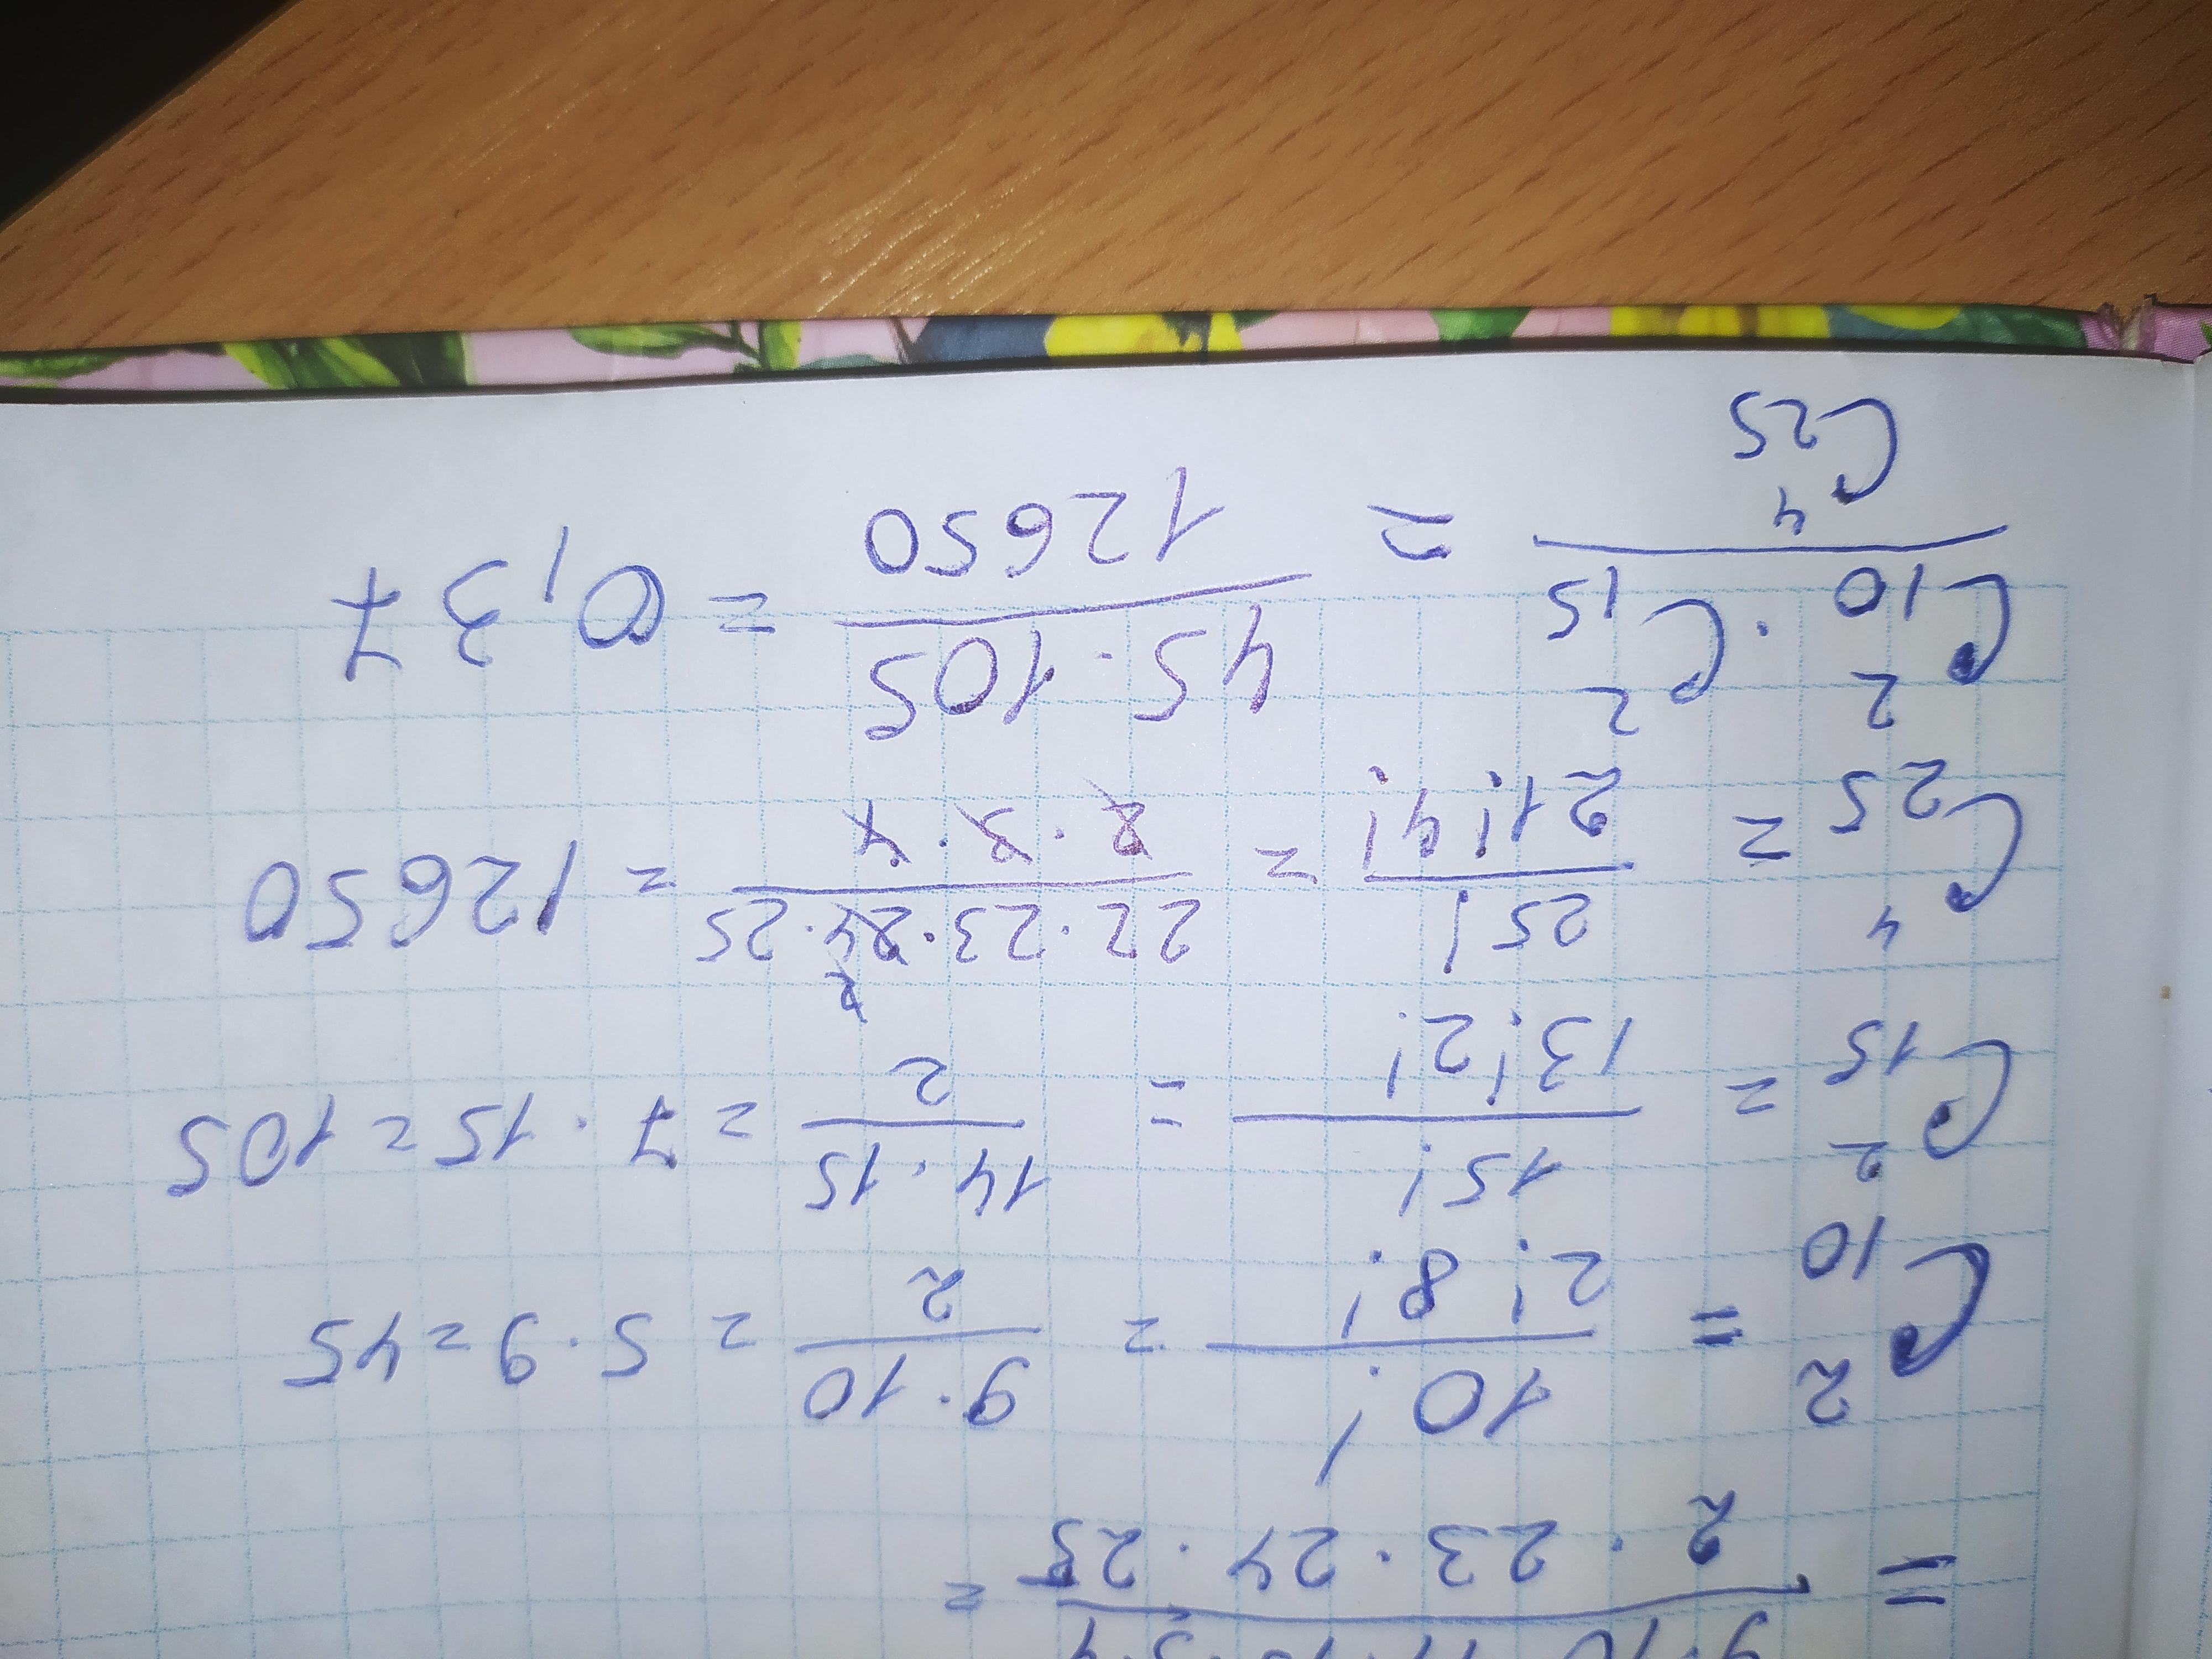 9·10·11·12·3·4
= ―――――― =
2·23·24·25
C₁₀² = 10! / 2! 8! = 9·10 / 2 = 5·9 = 45
C₁₅² = 15! / 13! 2! = 14·15 / 2 = 7·15 = 105
C₂₅⁴ = 25! / 21! 4! = 22·23·24·25 / 2·3·4 = 12650
C₁₀² · C₁₅² / C₂₅⁴ = 45·105 / 12650 = 0,37